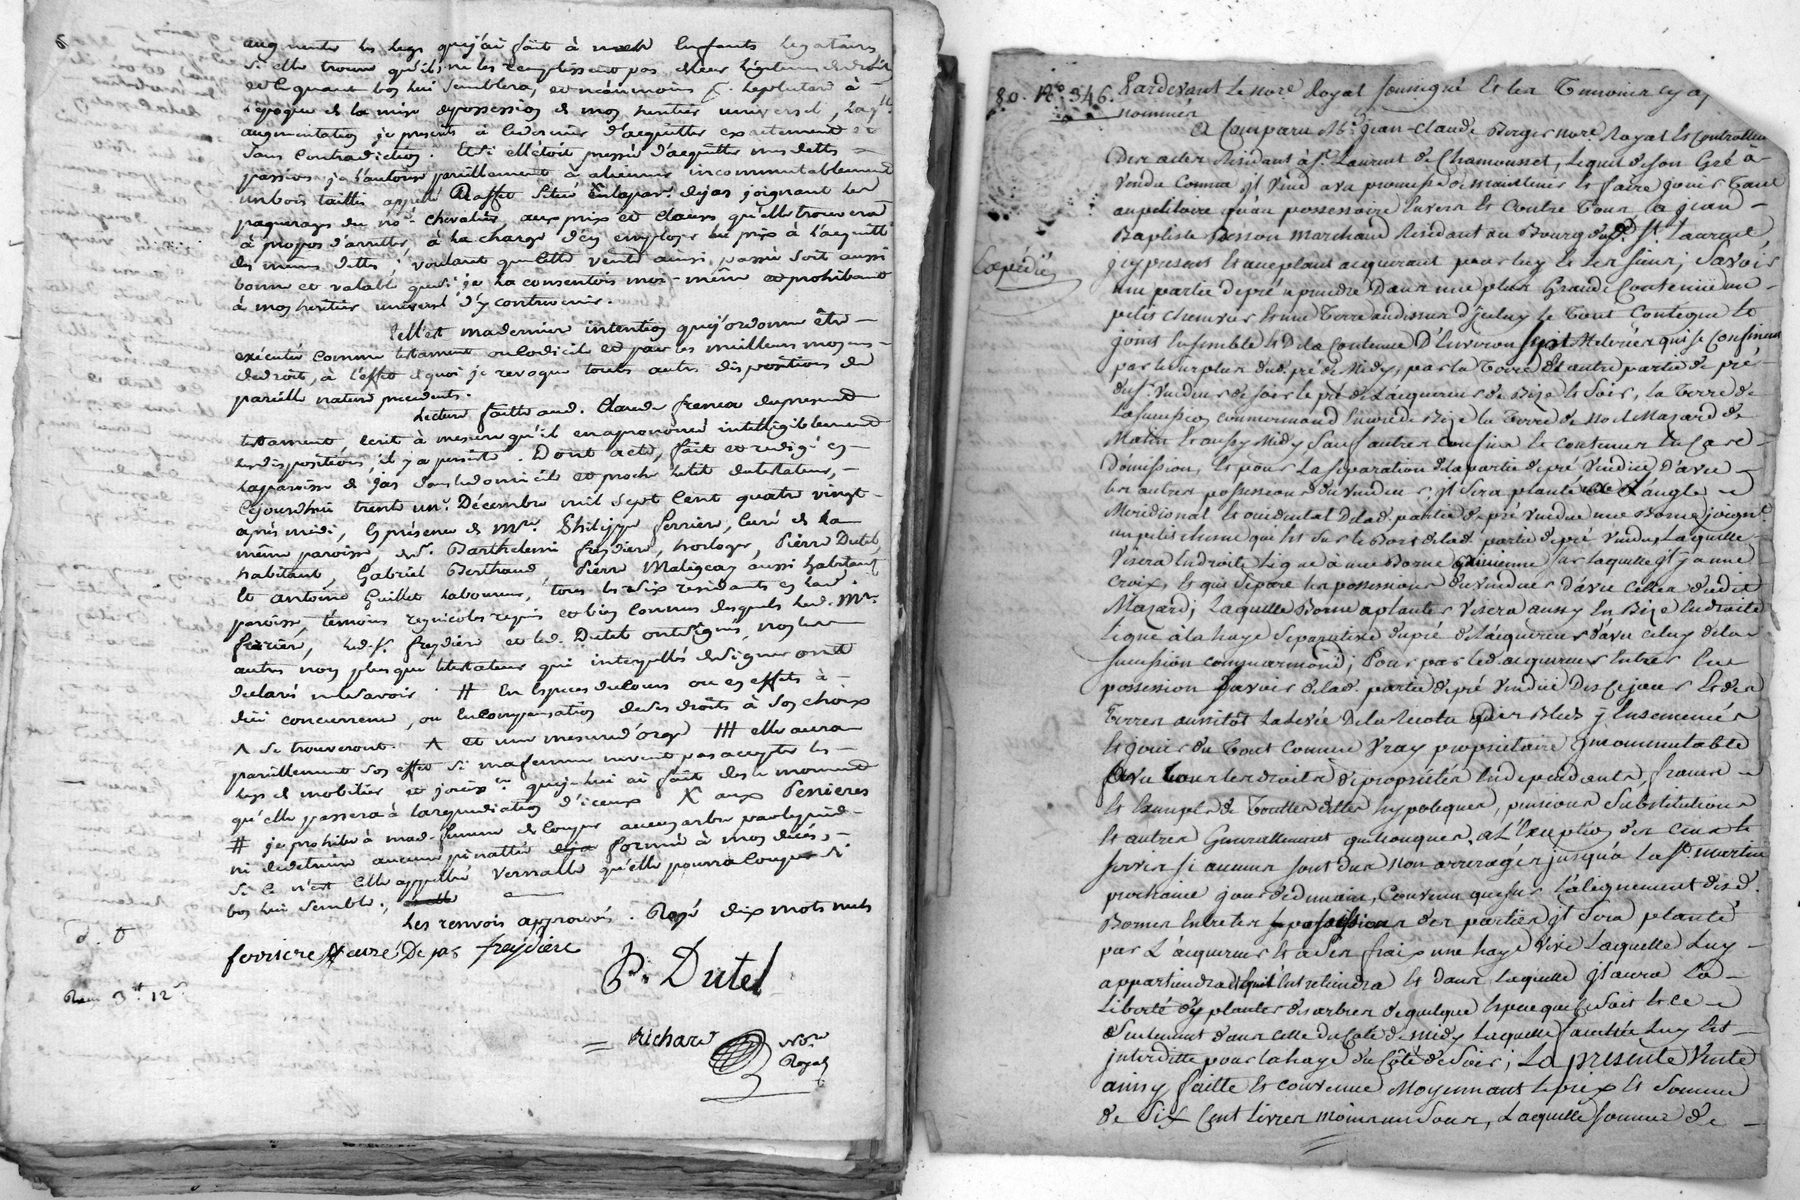 6
augmenter les legs que j'ai fait à mesd. Enfants legataires,
Si elle trouve qu'ils ne les remplissent pas de leur légitime de droit
et de quant bon lui Semblera, et néanmoins
L'époque de la mise de possession de mon heritier universel, laqlle
augmentation je prescris à ce dernier d'acquitter exactement et
Sans Contradiction. Et Si elle étoit pressée d'acquitter mes dettes
passives je l'autorise pareillement à aliener incommutablement
un bois taillis appellé Situé En la par. de jas joignant les
paquerages du no. chevalier, aux prix et Clauses qu'elle trouvera
à propos d'arretter, à la charge d'en employer le prix à l'acquitt
des mêmes dettes ; voulant que cette vente ainsi passée Soit aussi
bonne et valable que Si je la Consentois moi-même et prohibant
à mon heritier universel d'y contrevenir.
Telle est ma derniere intention que j'ordonne être
exécutée Comme testament ou Codicile et par les meilleurs moyens
de droit, à l'effet de quoi je revoque toutes autres dispositions de
pareille nature precedents.
Lecture faitte aud. Claude du present
testament, écrit à mesure qu'il en a prononcé intelligiblement
les dispositions, il y a persisté. Dont acte, fait et redigé en
la paroisse de Jas dans le domicile et proche le lit du testateur,
Cejourdhui trente un Décembre mil Sept Cent quatre vingt
après midi, En présence de Mre. Philippe ferriere, Curé de la
même paroisse, de Sr. Barthelemi freydiere, horloger, Pierre Dutel,
habitant, Gabriel Berthaud Pierre Maligeay aussi habitant
Et antoine Guillet laboureur, tous les Six residants en lad.
paroisse, témoins regnicoles requis et bien Connus desquels led. Mre.
ferriere, led. Sr. freydiere et led. Dutel ont Signé, non les
autres non plus que le testateur qui interpellés de Signer ont
declaré ne le Savoir. # En Especes de Cours ou en effets à
due concurrence, ou En Compensation de Ses droits à Son choix
^ Se trouveront. ^ et une mesure d'orge ### elle aura
pareillement Son effet Si ma femme ne veut pas accepter les
legs de mobilier et jouissce que je lui ai fait dès le moment
qu'elle passera à la repudiation d'iceux X aux Penieres
# je prohibe à mad. femme de Couper aucun arbre par le pied
ni de detruire aucune pinattée formée à mon décès,
Si Ce n'est Celle appellée vernatte qu'elle pourra Couper Si
bon lui Semble ;
Les renvois approuvés. Rayé dix mots nuls
ferriere curé De jas freydiere
P. Dutel
Reçu 3 tt 12 s
richard Nre. Royal
80. No. 346. Pardevant Le nore. Royal Soussigné Et les Temoins cy ap
nommés
Expédiée
A Comparu Mr. Jean-Claude Berger nore. Royal Et Controlleur
Des actes Residant à St. Laurent de Chamousset, Lequel de Son Gré à
Vendu Comme Il Vend avec promesse de maintenir Et faire jouir Tant
au petitoire qu'au possessoire Envers Et Contre Tous, à Jean
Baptiste Besson Marchand Residant au Bourg dud. St. Laurent
Icy present Et acceptant acquerant pour luy Et les Siens ; Savoir
une partie de pré à prendre Dans une plus Grande Contenue un
petit chenevier Et une Terre au dessus d'Iceluy Le Tout Contigue Et
joint Ensemble Et De la Contenue D'Environ Sept Meterées qui Se Confinent
par Le Surplus dud. pré de Midy, par la Terre Et autre partie de pré
dud. Sr. Vendeur de Soir le pré de L'acquereur de Bize Et Soir, La Terre de
La Succession commarmond Encore de Bize La Terre de no. el Mazard de
Matin Et aussy Midy Sauf autres Confins Et Contenue En Cas
D'omission, Et pour La Separation de la partie de pré Vendüe D'avec
les autres possessions du Vendeur, Il Sera planté à L'angle
Meridional Et occidental De lad. partie de pré Vendue une Borne joignt.
un petit chesne qui Est Sur Le Bord de lad. partie de pré Vendu, Laquelle
Visera En droite Ligne à une Borne ancienne Sur laquelle Il y a une
Croix, Et qui Separe Les possessions du Vendeur D'avec Celles Dudit
Mazard ; Laquelle Borne à planter Visera aussy En Bize En droite
Ligne à la haye Separative du pré de L'acquereur d'avec Celuy de la
Succession commarmond ; Pour par led. acquereur Entrer En
possession Savoir de lad. partie de pré Vendüe Dès Ce jour Et des
Terres aussitôt La Levée De la Recolte Des Bleds y Ensemencés
Et jouir du Tout Comme Vray proprietaire Incommutable
avec Tous les droits de propriété En dependants, francs
Et Exempts de Touttes dettes hypoteques, pensions Substitutions
Et autres Generallement quelconques, à L'Exception des Cens Et
Servis Si aucuns Sont dus Non arreragés jusqu'à La St. Martin
prochaine jour de demain, Convenu que Sur L'alignement desd.
Bornes Entre Les possessions des parties Il Sera planté
par L'acquereur Et à Ses frais une haye Vive Laquelle Luy
appartiendra Et qu'il Entretiendra Et Dans laquelle Il aura La
Liberté d'y planter des arbres de quelque Espece que Ce Soit Et Ce
Seulement dans Celle du Coté de Midy Laquelle faculté Luy Est
Interditte pour la haye du Côté de Soir ; La presente Vente
ainsy faitte Et Convenue Moyennant Le prix Et Somme
de Six Cent Livres moins un Sour, Laquelle Somme de